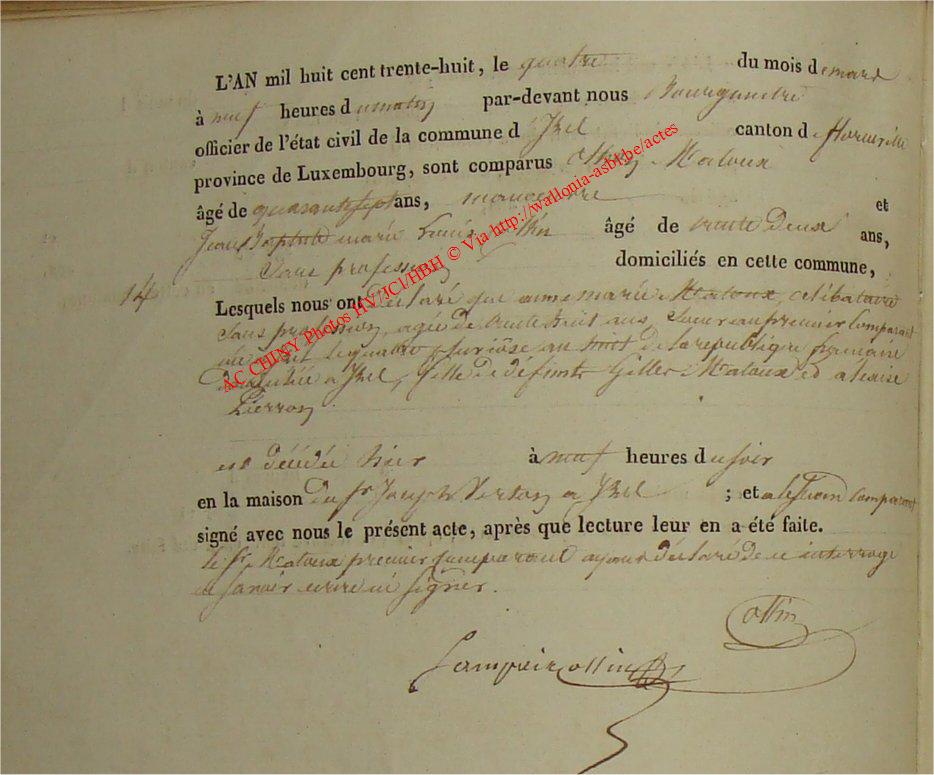 L'AN mil huit cent trente-huit, le quatre du mois de mars
à neuf heures du matin par-devant nous Bourguestre
officier de l'état civil de la commune d Izel canton de florenville
province de Luxembourg, sont comparus Maloux
âgé de quarante sept ans, manoeuvre et
Jean Baptiste marie âgé de trente Deux ans,
Sans profession domiciliés en cette commune,
14
Lesquels nous ont Declaré que anne marie Maloux, celibataire
Sans profession, agée de trente huit ans, Soeur au premier Comparant
née le quatre an huit de la republique francaise
à Izel, fille de défunts Gilles Maloux et
Pierron
est décédée hier à neuf heures du soir
en la maison du Sr Joseph a Izel ; et a le second Comparant
signé avec nous le présent acte, après que lecture leur en a été faite.
le Sr Maloux premier Comparant ayant déclaré de ce interrogé
ne savoir écrire ni signer.
ottin
AC CHINY Photos HV/JCI/HBH © Via http://wallonia-asbl.be/actes